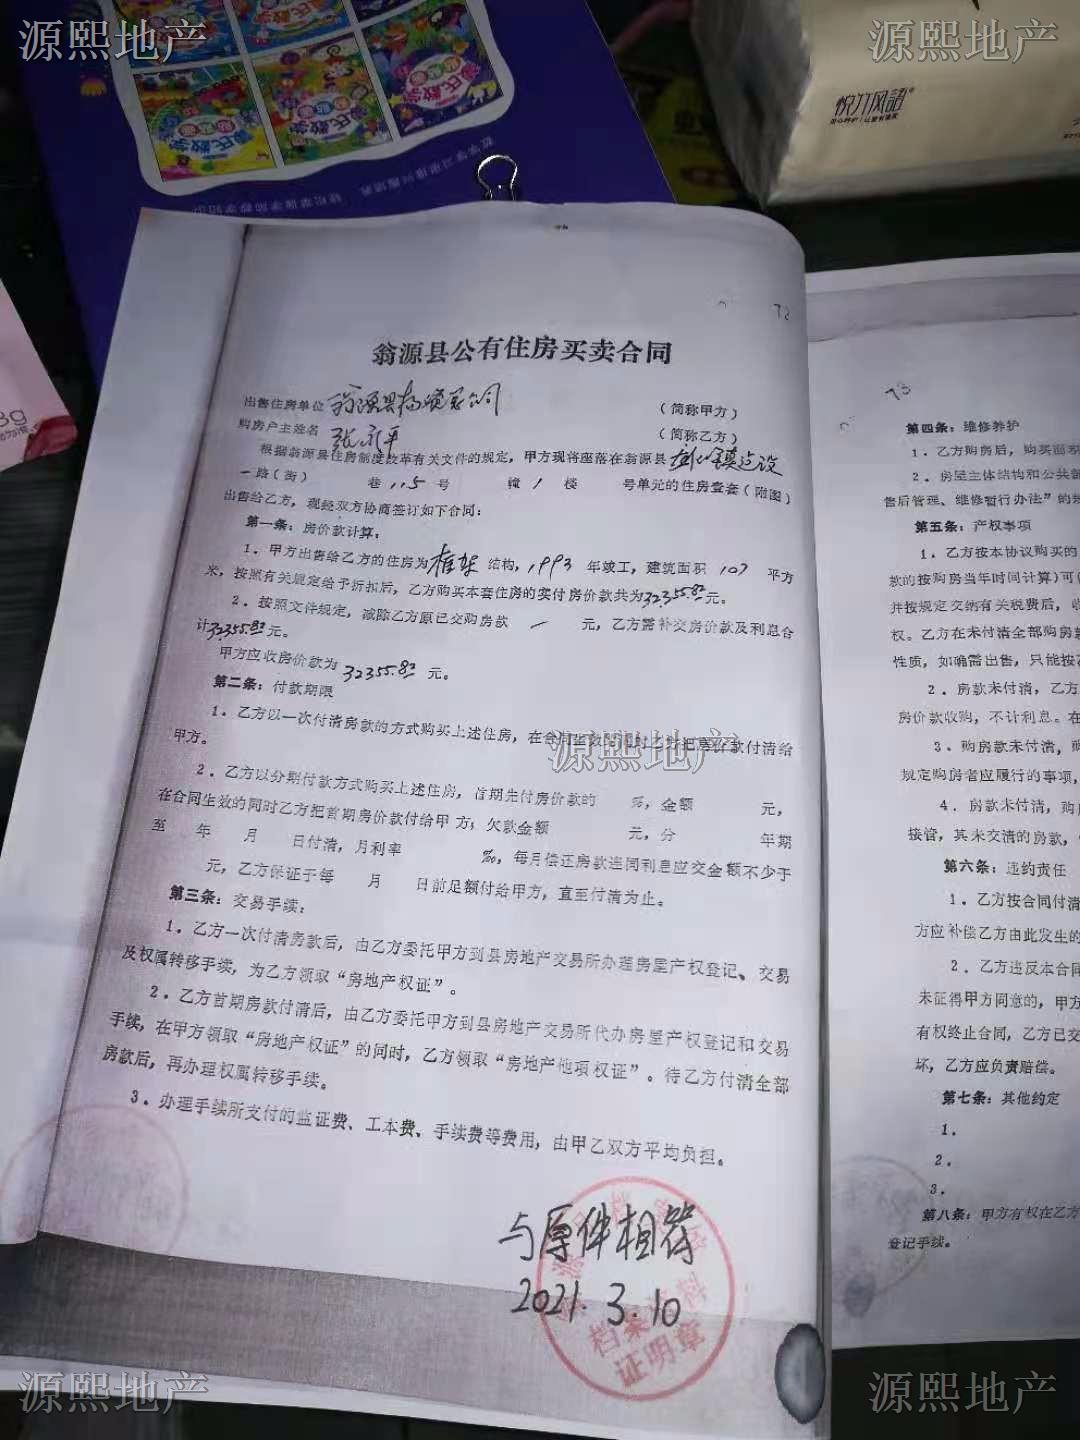 源熙地产
源熙地产
悦风语
72
翁源县公有住房买卖合同
出售住房单位 翁源县物资总公司 （简称甲方）
购房户主姓名 张永平 （简称乙方）
根据翁源县住房制度改革有关文件的规定，甲方现将座落在翁源县 镇建设
一路（街） 巷 115 号 幢 1 楼 号单元的住房壹套（附图）
出售给乙方，现经双方协商签订如下合同：
第一条：房价款计算：
1．甲方出售给乙方的住房为 框架 结构，1993 年竣工，建筑面积 107 平方
米，按照有关规定给予折扣后，乙方购买本套住房的实付房价款共为32355.83元。
2．按照文件规定，减除乙方原已交购房款 一 元，乙方需补交房价款及利息合
计32355.83元。
甲方应收房价款为 32355.83 元。
第二条：付款期限
1．乙方以一次付清房款的方式购买上述住房，在合同生效的同时乙方把房价款付清给
甲方。
源熙地产
2．乙方以分期付款方式购买上述住房，首期先付房价款的 %，金额 元，
在合同生效的同时乙方把首期房价款付给甲方；欠款金额 元，分 年期
至 年 月 日付清，月利率 ‰，每月偿还房款连同利息应交金额不少于
元，乙方保证于每 月 日前足额付给甲方，直至付清为止。
第三条：交易手续：
1．乙方一次付清房款后，由乙方委托甲方到县房地产交易所办理房屋产权登记、交易
及权属转移手续，为乙方领取“房地产权证”。
2．乙方首期房款付清后，由乙方委托甲方到县房地产交易所代办房屋产权登记和交易
手续，在甲方领取“房地产权证”的同时，乙方领取“房地产他项权证”。待乙方付清全部
房款后，再办理权属转移手续。
3．办理手续所支付的监证费、工本费、手续费等费用，由甲乙双方平均负担。
与原件相符
2021.3.10
档案资料
证明章
73
第四条：维修养护
1．乙方购房后，购买面积
2．房屋主体结构和公共部
售后管理、维修暂行办法”的规
第五条：产权事项
1．乙方按本协议购买的
款的按购房当年时间计算)可(
并按规定交纳有关税费后，收
权。乙方在未付清全部购房款
性质，如确需出售，只能按
2．房款未付清，乙方
房价款收购，不计利息。在
3．购房款未付清，
规定购房者应履行的事项，
4．房款未付清，购
接管，其未交清的房款，
第六条：违约责任
1．乙方按合同付清
方应补偿乙方由此发生的
2．乙方违反本合同
未征得甲方同意的，甲方
有权终止合同，乙方已交
坏，乙方应负责赔偿。
第七条：其他约定
1．
2．
3．
第八条：甲方有权在乙方
登记手续。
源熙地产
源熙地产